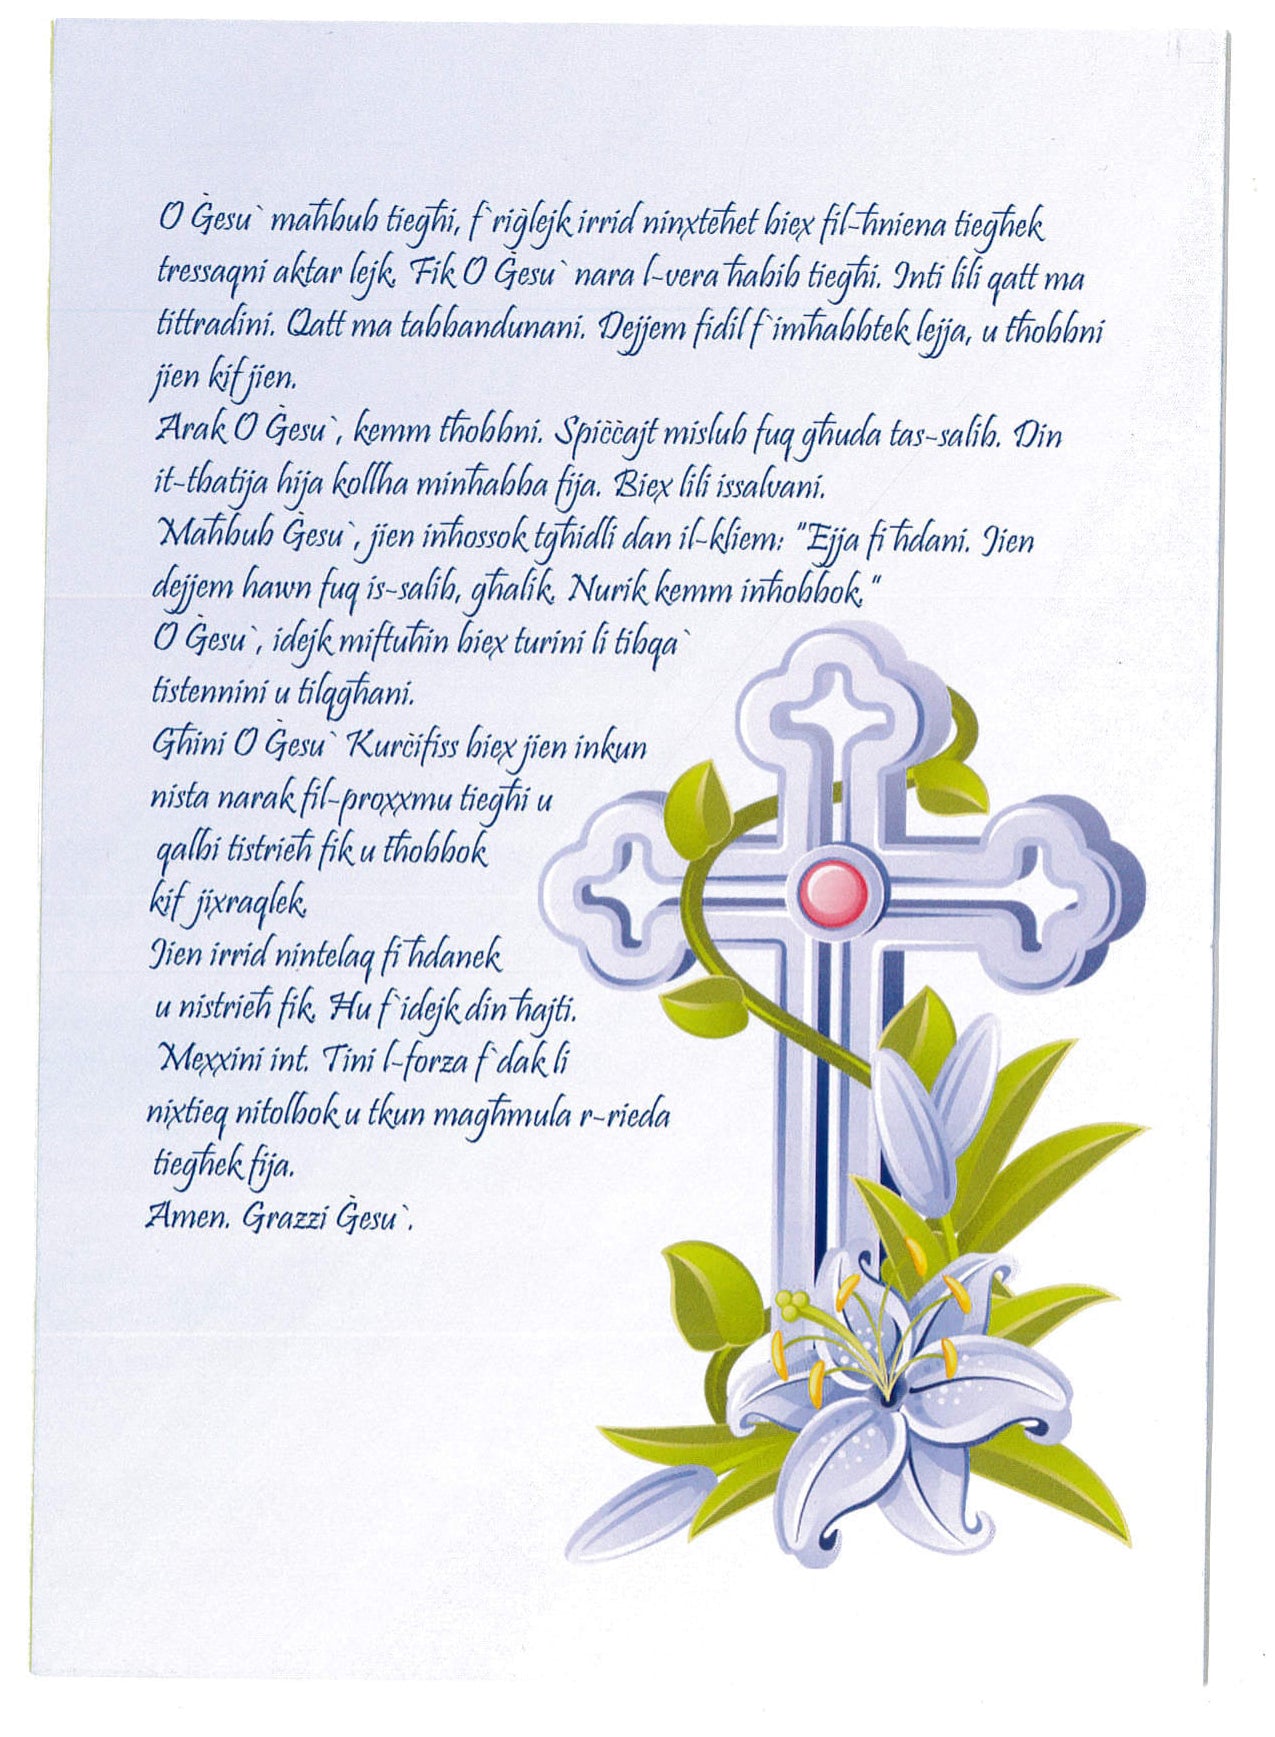 O Ġesu` maħbub tiegħi, f`riġlejk irrid ninxteħet biex fil-ħniena tiegħek
tressaqni aktar lejk. Fik O Ġesu` nara l-vera ħabib tiegħi. Inti lili qatt ma
tittradini. Qatt ma tabbandunani. Dejjem fidil f`imħabbtek lejja, u tħobbni
jien kif jien.
Arak O Ġesu`, kemm tħobbni. Spiċċajt mislub fuq għuda tas-salib. Din
it-tbatija hija kollha minħabba fija. Biex lili issalvani.
Maħbub Ġesu`, jien inħossok tgħidli dan il-kliem: "Ejja fi ħdani. Jien
dejjem hawn fuq is-salib, għalik. Nurik kemm inħobbok."
O Ġesu`, idejk miftuħin biex turini li tibqa`
tistennini u tilqgħani.
Għini O Ġesu` Kurċifiss biex jien inkun
nista narak fil-proxxmu tiegħi u
qalbi tistrieħ fik u tħobbok
kif jixraqlek.
Jien irrid nintelaq fi ħdanek
u nistrieħ fik. Ħu f`idejk din ħajti.
Mexxini int. Tini l-forza f`dak li
nixtieq nitolbok u tkun magħmula r-rieda
tiegħek fija.
Amen. Grazzi Ġesu`.